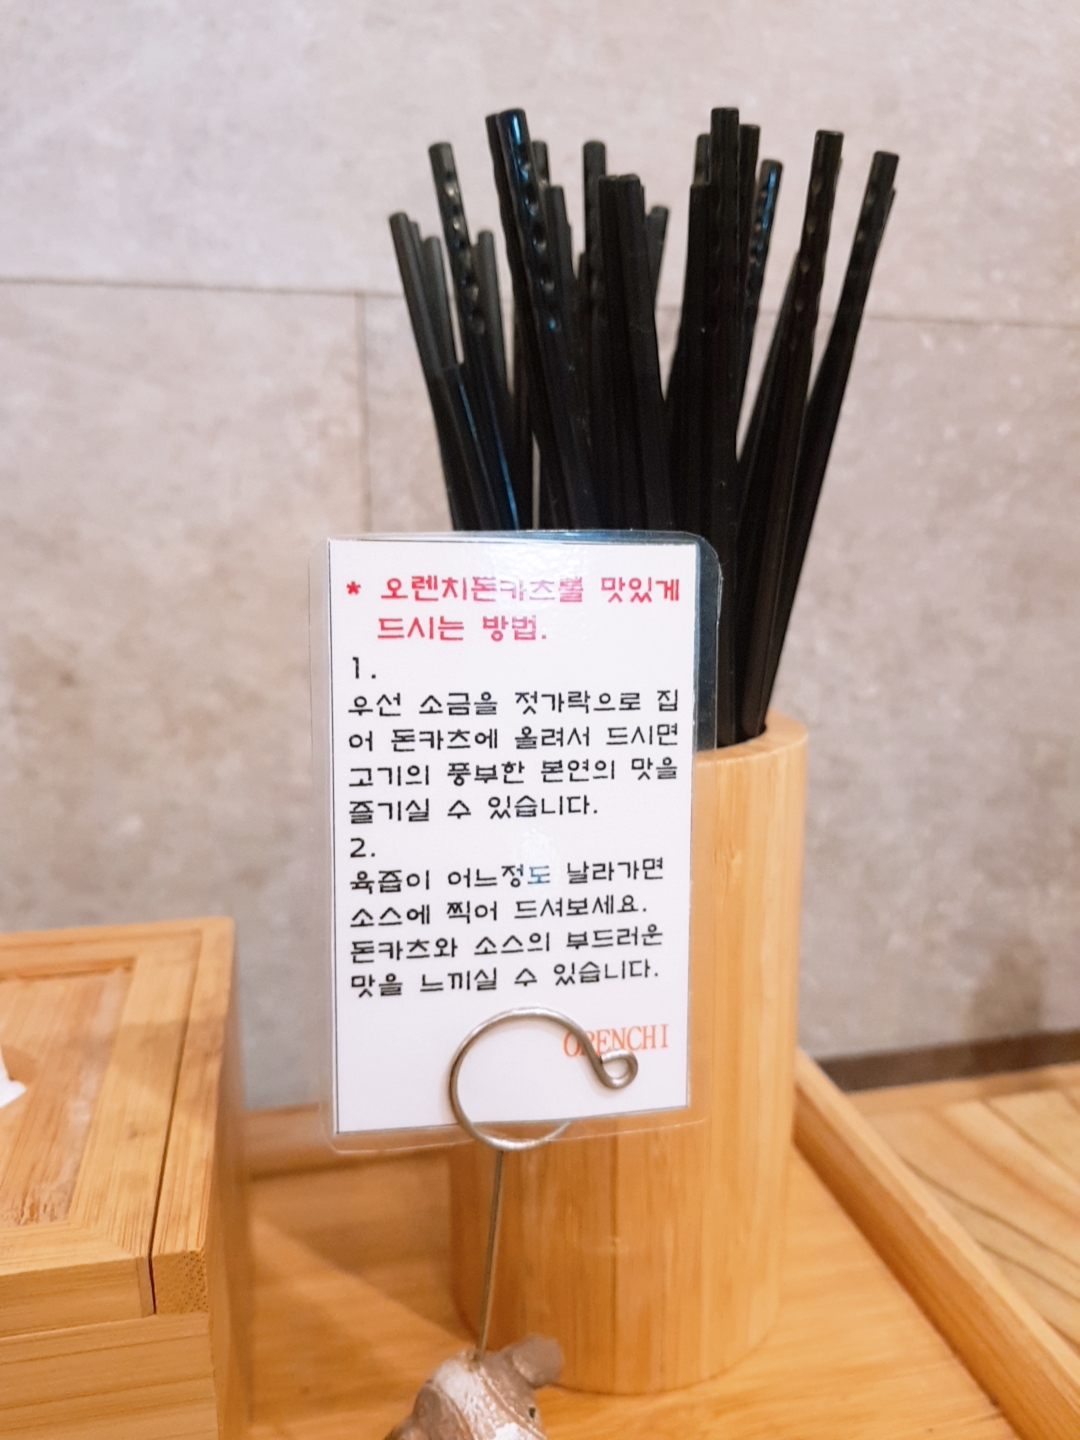 * 오렌치돈카츠를 맛있게
드시는 방법.
1.
우선 소금을 젓가락으로 집
어 돈카츠에 올려서 드시면
고기의 풍부한 본연의 맛을
즐기실 수 있습니다.
2.
육즙이 어느정도 날라가면
소스에 찍어 드셔보세요.
돈카츠와 소스의 부드러운
맛을 느끼실 수 있습니다.
ORENCHI